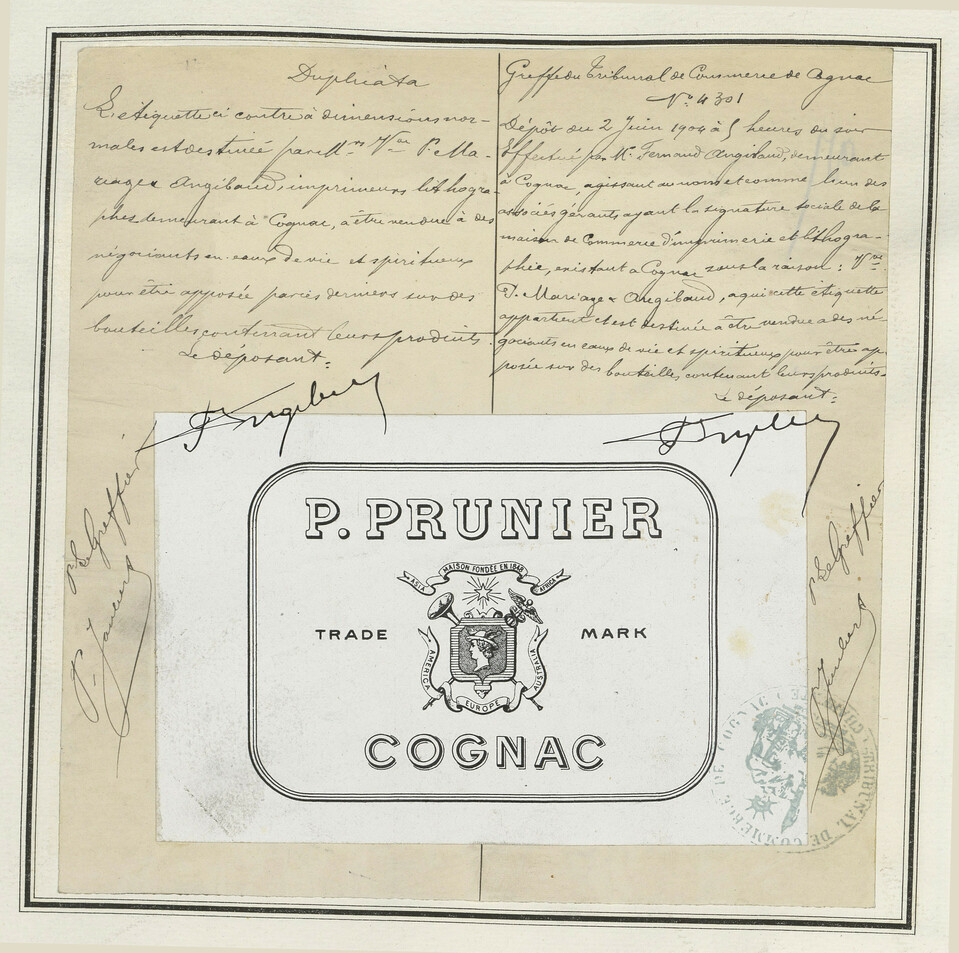 Duplicata
L'étiquette ci contre à dimensions nor-
males est destinée par Mrs Vve P. Ma-
riage & Angibaud, imprimeurs lithogra-
phes demeurant à Cognac, à être vendue à des
négociants en eaux de vie et spiritueux
pour être apposée par ces derniers sur des
bouteilles contenant leurs produits.
Le déposant:
Greffe du Tribunal de Commerce de Cognac
No 4301
Dépôt du 2 Juin 1904 à 5 heures du soir
Effectué par Mr Fernand Angibaud, demeurant
à Cognac, agissant au nom et comme l'un des
associés gérants ayant la signature sociale de la
maison de Commerce d'imprimerie et lithogra-
phie, existant à Cognac sous la raison: Vve
P. Mariage & Angibaud, à qui cette étiquette
appartient et est destinée à être vendue à des né-
gociants en eaux de vie et spiritueux pour être ap-
posée sur des bouteilles contenant leurs produits.
Le déposant:
Le Greffier
Le Greffier
P. PRUNIER
MAISON FONDÉE EN 1848
ASIA
AFRICA
TRADE MARK
AMERICA
AUSTRALIA
EUROPE
COGNAC
TRIBUNAL DE COMMERCE DE COGNAC